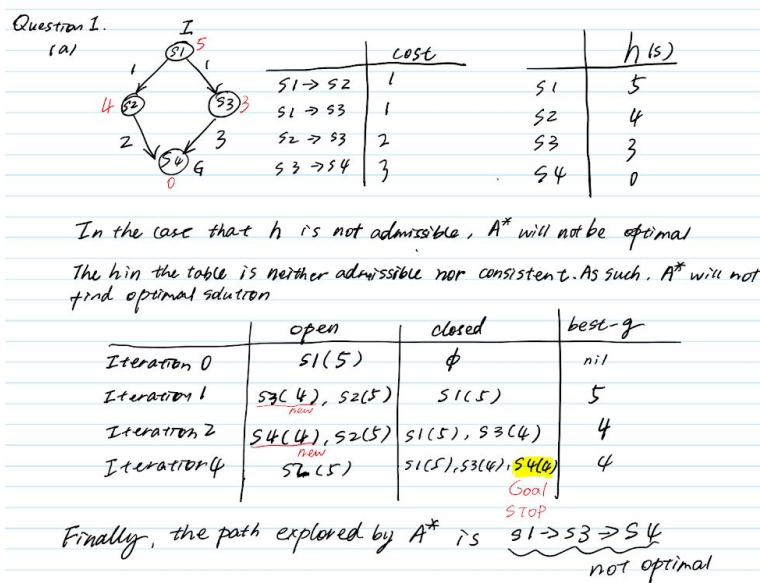 Question 1.
(a)
I
S1 5
1 1
4 S2 S3 3
2 3
S4 G
0
cost
S1 → S2 1
S1 → S3 1
S2 → S3 2
S3 → S4 3
h(s)
S1 5
S2 4
S3 3
S4 0
In the case that h is not admissible, A* will not be optimal
The h in the table is neither admissible nor consistent. As such, A* will not
find optimal solution
open closed best-g
Iteration 0 S1(5) ϕ nil
Iteration 1 S3(4), S2(5) S1(5) 5
new
Iteration 2 S4(4), S2(5) S1(5), S3(4) 4
new
Iteration 4 S2(5) S1(5), S3(4), S4(4) 4
Goal
STOP
Finally, the path explored by A* is S1→S3→S4
not optimal